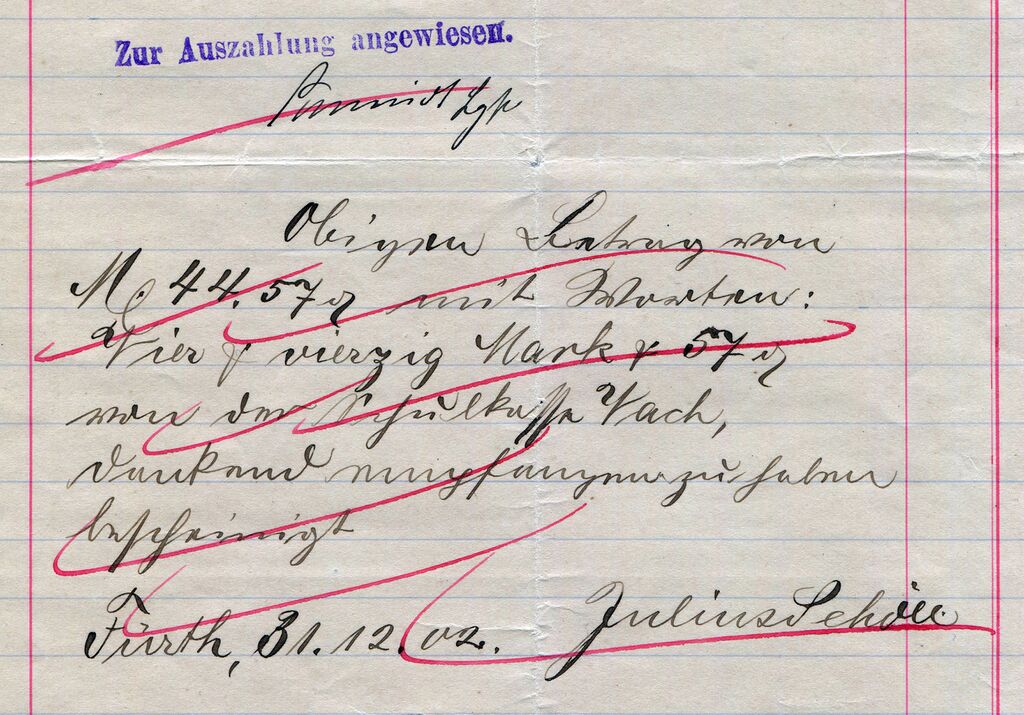 Zur Auszahlung angewiesen.
Schmidt
Obigen Betrag von
M. 44.57 ₰ mit Worten:
Vier & vierzig Mark & 57 ₰
von der Schulkasse Vach,
dankend empfangen zu haben
bescheinigt
Fürth, 31.12.02. Julius Schöll